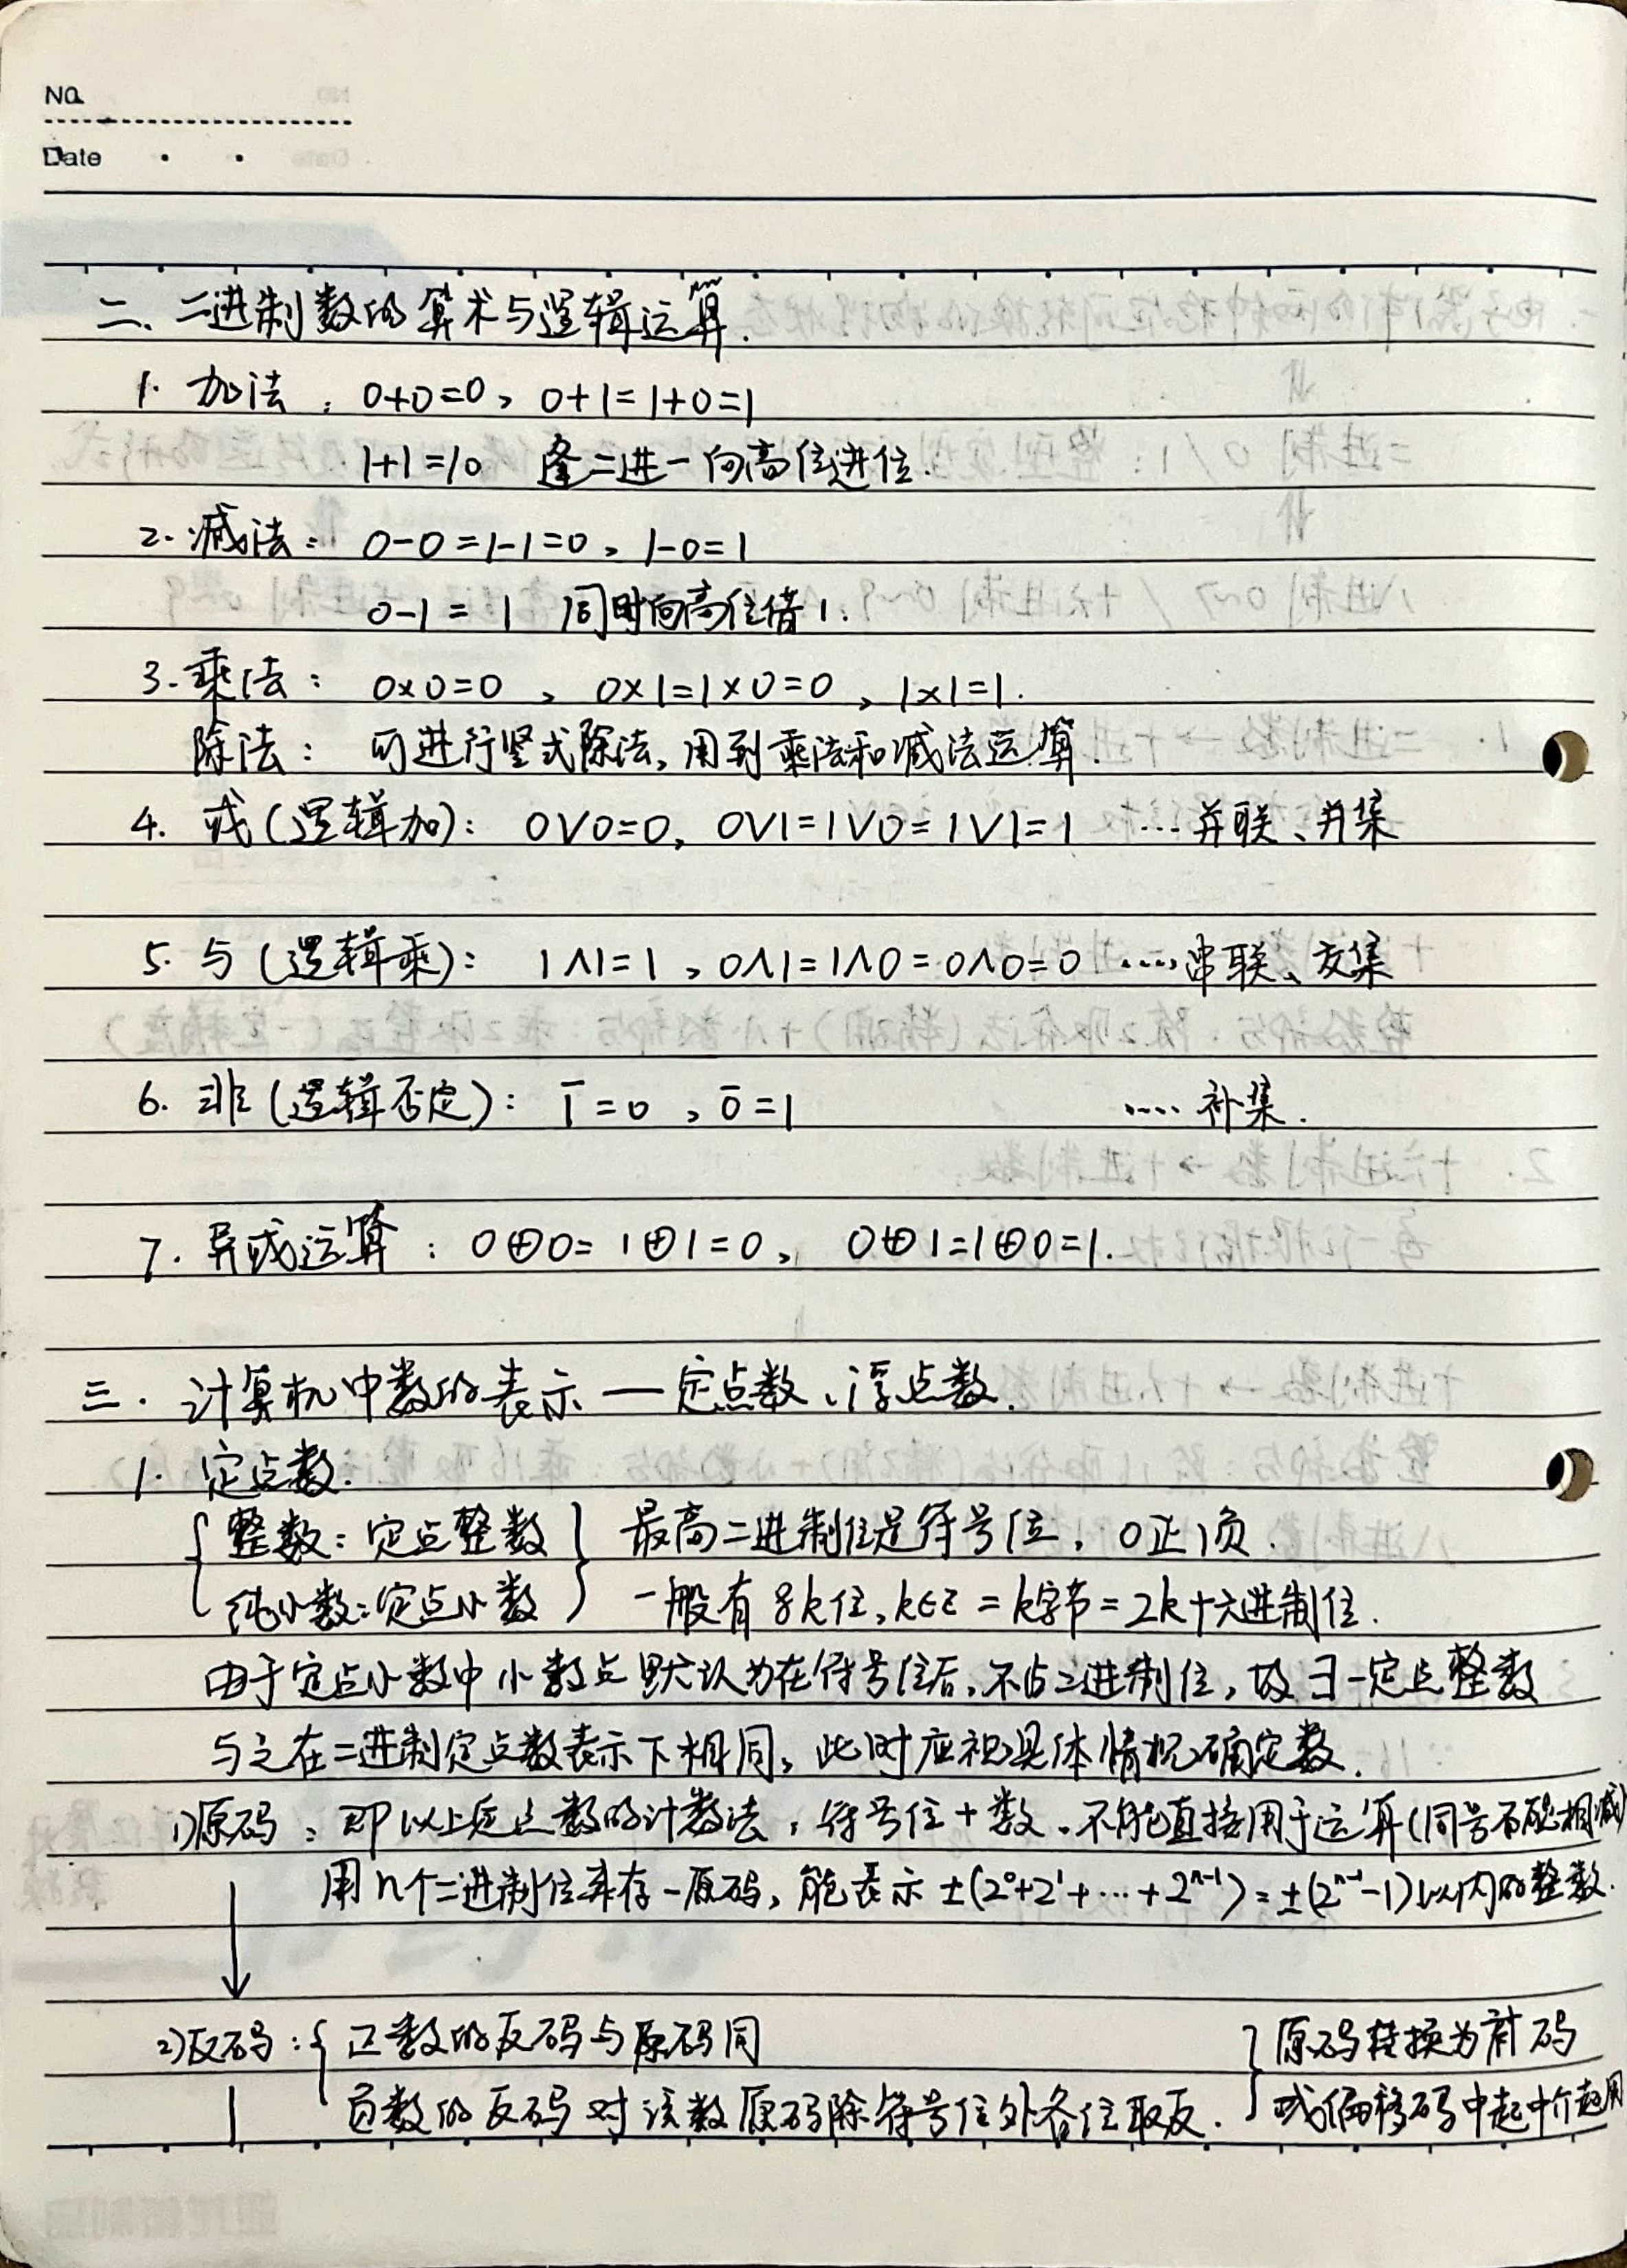 NO.
Date
二、二进制数的算术与逻辑运算.
1. 加法: 0+0=0, 0+1=1+0=1
1+1=10 逢二进一向高位进位.
2. 减法: 0-0=1-1=0, 1-0=1
0-1=1 同时向高位借1.
3. 乘法: 0×0=0, 0×1=1×0=0, 1×1=1.
除法: 可进行竖式除法, 用到乘法和减法运算.
4. 或(逻辑加): 0∨0=0, 0∨1=1∨0=1∨1=1 …并联、并集
5. 与(逻辑乘): 1∧1=1, 0∧1=1∧0=0∧0=0 …串联、交集
6. 非(逻辑否定): 1̄=0, 0̄=1 …补集.
7. 异或运算: 0⊕0=1⊕1=0, 0⊕1=1⊕0=1.
三. 计算机中数的表示—定点数、浮点数.
1. 定点数.
{整数: 定点整数} 最高二进制位是符号位, 0正1负.
{纯小数: 定点小数} 一般有8k位, k∈Z = k字节 = 2k十六进制位.
由于定点小数中小数点默认为在符号位后, 不占二进制位, 故∃一定点整数
与之在二进制定点数表示下相同, 此时应视具体情况确定数.
1)原码: 即以上定点数的计数法, 符号位+数. 不能直接用于运算(同号不能相减)
用n个二进制位来存一原码, 能表示±(2⁰+2¹+…+2ⁿ⁻¹)=±(2ⁿ⁻¹-1)以内的整数.
2)反码: {正数的反码与原码同 }原码转换为补码
负数的反码对该数原码除符号位外各位取反. 或偏移码中起中介起用